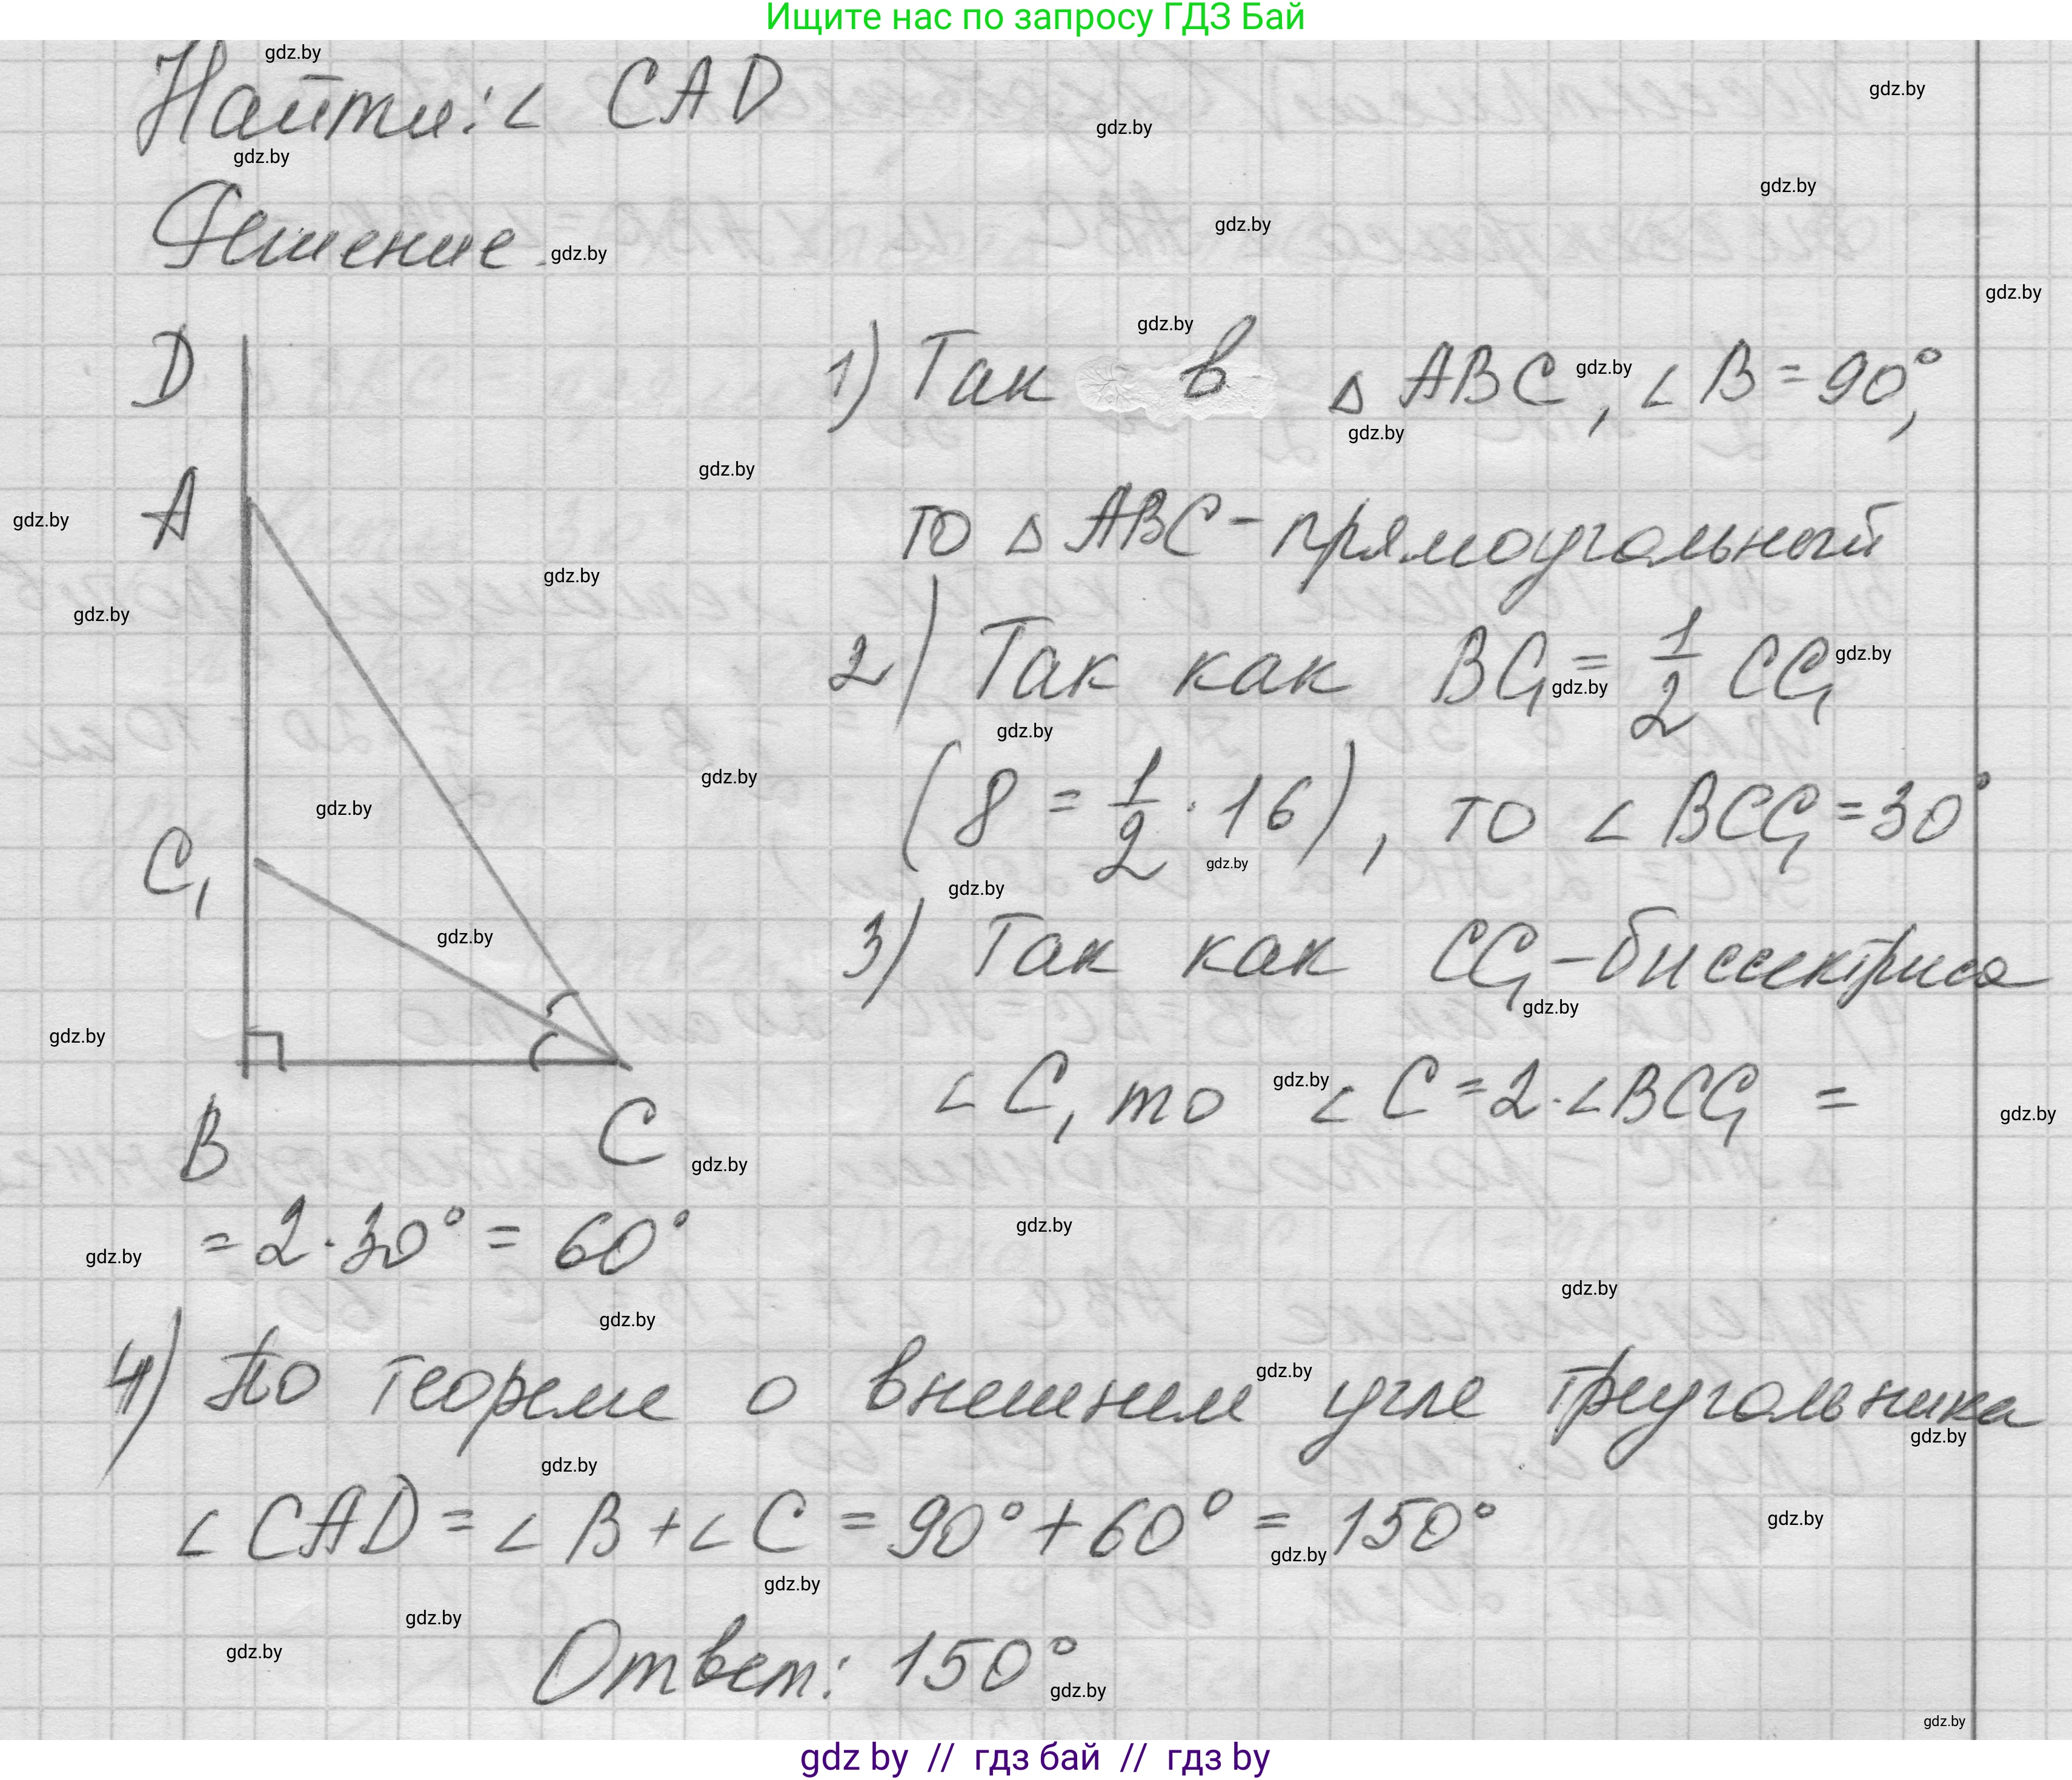 Ищите нас по запросу ГДЗ Бай
Найти: ∠ CAD
Решение.
D
A
C₁
B
C
1) Так в △ ABC, ∠ B = 90°,
то △ ABC - прямоугольный
2) Так как BC₁ = 1/2 CC₁
(8 = 1/2 · 16), то ∠ BCC₁ = 30°
3) Так как CC₁ - биссектриса
∠ C, то ∠ C = 2 · ∠ BCC₁ =
= 2 · 30° = 60°
4) По теореме о внешнем угле треугольника
∠ CAD = ∠ B + ∠ C = 90° + 60° = 150°
Ответ: 150°
gdz.by
gdz by // гдз бай // гдз by